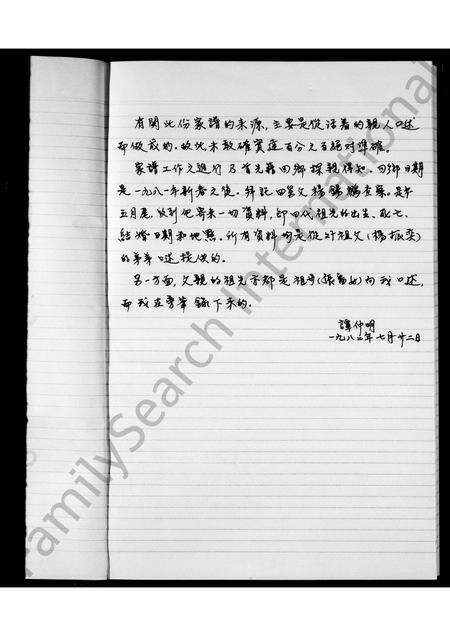 有関此份家譜的來源，主要是從活着的親人口述
而做成的。故此未敢確實是百分之百絕對準確。
家譜工作之進行乃首先藉回鄉探親得知。回鄉日期
是一九八一年新春之後。拜託四舅父楊錦鵬查察。是年
五月尾，收到他寄來一切資料，即四代祖先的出生、死亡、
結婚日期和地點。所有資料均是從外祖父（楊振奕）
的弟弟口述提供的。
另一方面，父親的祖先亦都是祖母（張女）向我口述，
而我在旁筆錄下來的。
譚仲明
一九八二年七月廿二日
FamilySearch International